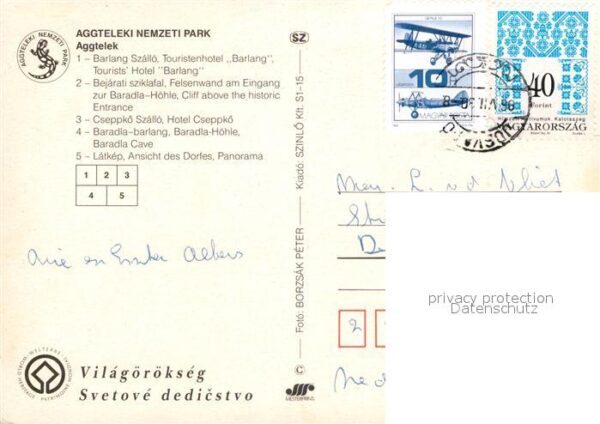 AGGTELEKI NEMZETI PARK
AGGTELEKI NEMZETI PARK
Aggtelek
1 – Barlang Szálló, Touristenhotel „Barlang",
Tourists' Hotel "Barlang"
2 – Bejárati sziklafal, Felsenwand am Eingang
zur Baradla-Höhle, Cliff above the historic
Entrance
3 – Cseppkő Szálló, Hotel Cseppkő
4 – Baradla-barlang, Baradla-Höhle,
Baradla Cave
5 – Látkép, Ansicht des Dorfes, Panorama
1 2 3
4 5
Arie en Ester Albers
Világörökség
Svetové dedičstvo
WORLD HERITAGE
PATRIMOINE MONDIAL
SZ
Fotó: BORZSÁK PÉTER — Kiadó: SZINLŐ Kft. S1–15
©
10
MAGYAR
40
Forint
MAGYARORSZÁG
L. v d Vliet
2
privacy protection
Datenschutz